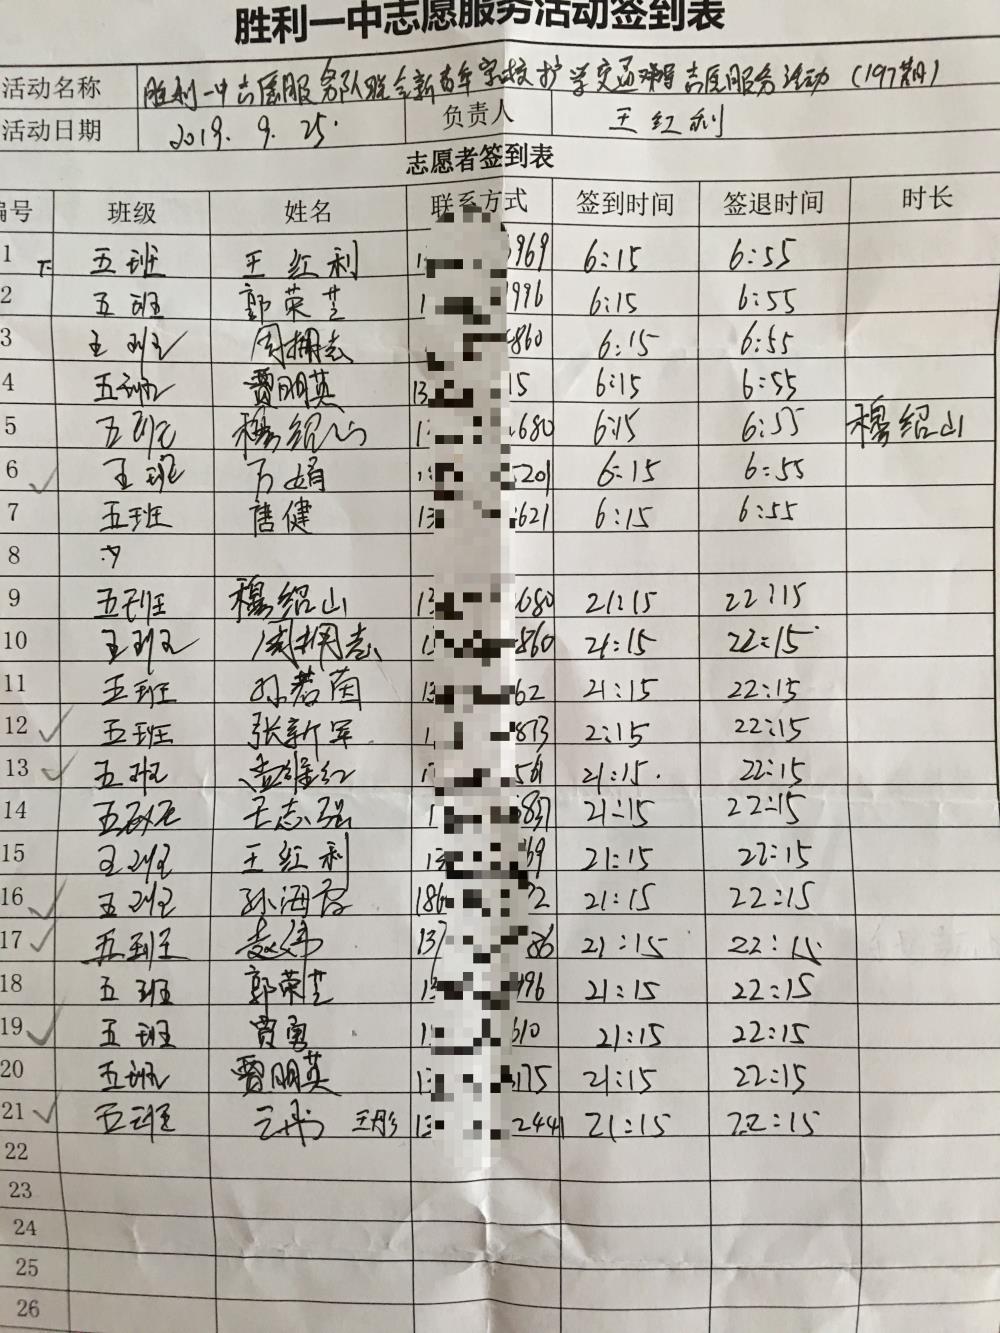 胜利一中志愿服务活动签到表
活动名称 胜利一中志愿服务队 学校护学交通 志愿服务活动（197期）
活动日期 2019.9.25. 负责人 王红利
志愿者签到表
编号 班级 姓名 联系方式 签到时间 签退时间 时长
1 五班 王红利 1 969 6:15 6:55
2 五班 郭荣芝 1 996 6:15 6:55
3 五班 周拥志 860 6:15 6:55
4 五班 贾明英 13 15 6:15 6:55
5 五班 穆绍山 1 680 6:15 6:55 穆绍山
6 五班 万娟 201 6:15 6:55
7 五班 唐健 13 621 6:15 6:55
8
9 五班 穆绍山 13 680 21:15 22:15
10 五班 周拥志 1 860 21:15 22:15
11 五班 孙若茵 13 62 21:15 22:15
12 五班 张新军 1 873 2:15 22:15
13 五班 孟维红 1 561 21:15. 22:15
14 五班 王志强 1 837 21:15 22:15
15 五班 王红利 13 69 21:15 22:15
16 五班 孙海 186 2 21:15 22:15
17 五班 赵伟 137 86 21:15 22:15
18 五班 郭荣芝 13 996 21:15 22:15
19 五班 贾勇 1 610 21:15 22:15
20 五班 贾明英 13 175 21:15 22:15
21 五班 王彤 13 2441 21:15 22:15
22
23
24
25
26